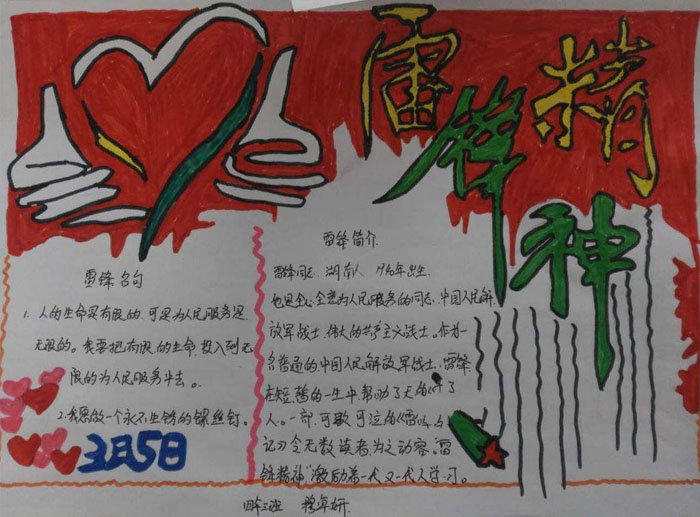 雷锋精神
雷锋名句
1. 人的生命是有限的,可是为人民服务是
无限的。我要把有限的生命,投入到无
限的为人民服务中去。
2.我愿做一个永不生锈的螺丝钉。
3月5日
雷锋简介
雷锋同志,湖南人,1940年出生
他是全心全意为人民服务的同志,中国人民解
放军战士,伟大的共产主义战士。作为一
名普通的中国人民解放军战士,雷锋
在短暂的一生中帮助了无的
人。一部可歌可泣的《雷日
记》令无数读者为之动容。雷
锋精神激励着一代又一代人学习。
四年三班